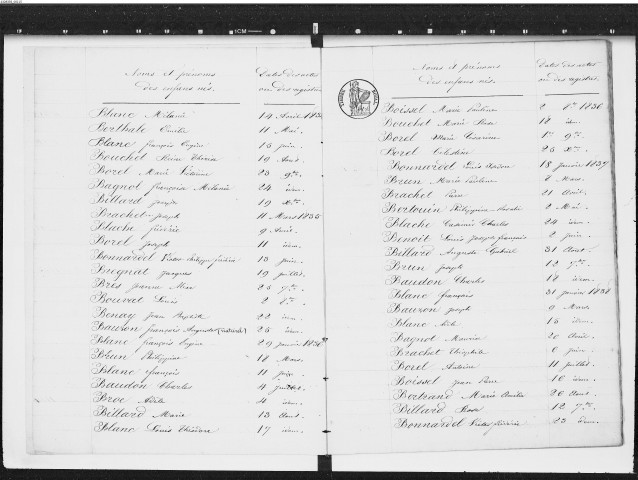 Noms et prénoms
des enfans nés.
Dates des actes
ou des registres
Blanc Mélanie 14 Avril
Berthale Emilie 11 Mai.
Blanc françois Eugène 15 juin.
Bouchet 19 Avril
Borel Marie Victoire 23 9bre
Bagnol françoise Mélanie 24 idem.
Billard joseph 19 Xbre
Brachet joseph 11 Mars 1835
Blache frédéric 9 Avril.
Borel joseph 11 idem.
Bonnardel Victor Philippe frédéric 13 juin.
Bugnat jacques 19 juillet.
Bres jeanne 25 7bre
Bouvat Louis 2 8bre
Benay jean Baptiste 22 idem
Bauron françois Auguste (naturel) 26 idem
Blanc françois Eugène 29 janvier 1836
Brun Philippine 18 Mars.
Blanc françois 11 juin.
Baudon Charles 4 juillet.
Broc Adèle 4 idem
Billard Marie 13 Aout.
Blanc Louis Théodore 17 idem.
Noms et prénoms
des enfans nés.
Dates des actes
ou des registres
Boissel Marie Pauline 2 1836
Bouchet Marie Rose 12 idem.
Borel Marie Césarine 1er 9bre
Borel Célestin 25 Xbre
Bonnardel Louis 18 janvier 1837
Brun Marie Pauline 8 Mars.
Brachet 21 Avril.
Bertouin Philippine Rosalie 2 Mai.
Blache Casimir Charles 24 idem
Benoit Louis Joseph françois 2 juin.
Billard Auguste Gabriel 31 Aout.
Brun joseph 12 7bre
Baudon Charles 18 idem
Blanc françois 31 janvier 1838
Bauron joseph 9 Mars
Blanc Adèle 15 idem
Bagnol Maurice 20 Avril.
Brachet Théophile 6 juin.
Borel Antoine 11 juillet.
Boissel jean Pierre 16 idem
Bertrand Marie Emilie 26 Aout.
Billard Rose 12 7bre
Bonnardel Victor frédéric 23 idem.